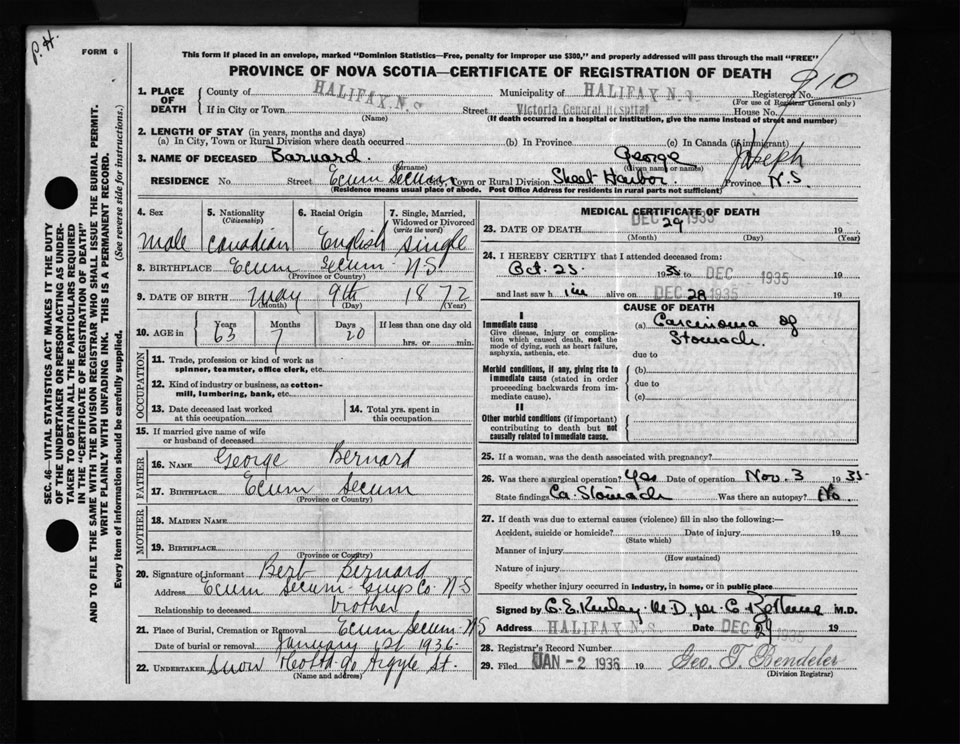 P.H.
FORM 6
This form if placed in an envelope, marked "Dominion Statistics—Free, penalty for improper use $300," and properly addressed will pass through the mail "FREE"
PROVINCE OF NOVA SCOTIA—CERTIFICATE OF REGISTRATION OF DEATH
910
1. PLACE OF DEATH
County of HALIFAX, N.S. Municipality of HALIFAX N.S. Registered No.
(For use of Registrar General only)
If in City or Town Street Victoria General Hospital House No.
(Name) (If death occurred in a hospital or institution, give the name instead of street and number)
2. LENGTH OF STAY (in years, months and days)
(a) In City, Town or Rural Division where death occurred (b) In Province (c) In Canada (if immigrant)
3. NAME OF DECEASED Barnard. George Joseph
(Surname) (Given name or names)
RESIDENCE No. Street Ecum Secum City, Town or Rural Division Sheet Harbor. Province N.S.
(Residence means usual place of abode. Post Office Address for residents in rural parts not sufficient)
SEC. 46—VITAL STATISTICS ACT MAKES IT THE DUTY
OF THE UNDERTAKER OR PERSON ACTING AS UNDER-
TAKER TO OBTAIN ALL THE PARTICULARS REQUIRED
IN THE "CERTIFICATE OF REGISTRATION OF DEATH"
AND TO FILE THE SAME WITH THE DIVISION REGISTRAR WHO SHALL ISSUE THE BURIAL PERMIT.
WRITE PLAINLY WITH UNFADING INK. THIS IS A PERMANENT RECORD.
Every item of information should be carefully supplied. (See reverse side for instructions.)
4. Sex 5. Nationality (Citizenship) 6. Racial Origin 7. Single, Married, Widowed or Divorced (write the word)
Male Canadian English Single
8. BIRTHPLACE Ecum Secum N.S
(Province or Country)
9. DATE OF BIRTH May 9th 1872
(Month) (Day) (Year)
10. AGE in Years Months Days If less than one day old
63 7 20 hrs. or min.
OCCUPATION
11. Trade, profession or kind of work as
spinner, teamster, office clerk, etc.
12. Kind of industry or business, as cotton-
mill, lumbering, bank, etc.
13. Date deceased last worked
at this occupation
14. Total yrs. spent in
this occupation
15. If married give name of wife
or husband of deceased
FATHER
16. NAME George Bernard
17. BIRTHPLACE Ecum Secum
(Province or Country)
MOTHER
18. MAIDEN NAME
19. BIRTHPLACE
(Province or Country)
20. Signature of informant Bert Bernard
Address Ecum Secum Guys Co. N-S
Relationship to deceased brother
21. Place of Burial, Cremation or Removal Ecum Secum-NS
Date of burial or removal January 1st 1936
22. UNDERTAKER Snow 90 Argyle St.
(Name and address)
MEDICAL CERTIFICATE OF DEATH
23. DATE OF DEATH DEC 29 1935 19
(Month) (Day) (Year)
24. I HEREBY CERTIFY that I attended deceased from:
Oct. 25 1935 to DEC 1935 19
and last saw him alive on DEC 28 1935 19
CAUSE OF DEATH
I
Immediate cause
Give disease, injury or complica-
tion which caused death, not the
mode of dying, such as heart failure,
asphyxia, asthenia, etc.
(a) Carcinoma of
Stomach.
due to
Morbid conditions, if any, giving rise to
immediate cause (stated in order
proceeding backwards from im-
mediate cause).
(b)
due to
(c)
II
Other morbid conditions (if important)
contributing to death but not
causally related to immediate cause.
25. If a woman, was the death associated with pregnancy?
26. Was there a surgical operation? Yes Date of operation Nov. 3 1935
State findings Ca. Stomach Was there an autopsy? No.
27. If death was due to external causes (violence) fill in also the following:—
Accident, suicide or homicide? Date of injury 19
(State which)
Manner of injury
(How sustained)
Nature of injury
Specify whether injury occurred in industry, in home, or in public place
Signed by M.D. per M.D.
Address HALIFAX N.S. Date DEC 29 1935 19
28. Registrar's Record Number
29. Filed JAN -2 1936 19 Geo. T. Bendeler
(Division Registrar)